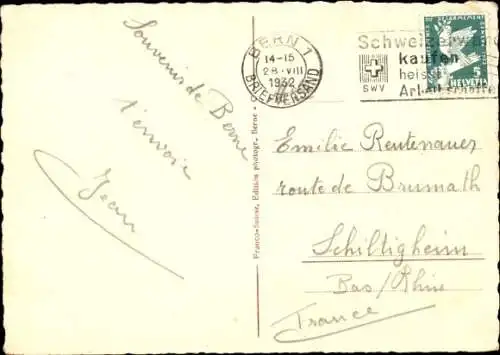 Souvenir de Berne
t'envoie
Jean
BERN 1
14-15
28·VIII
1932
BRIEFVERSAND
Schweizerware
kaufen
heisst
Arbeit schaffen
SWV
5
HELVETIA
Franco-Suisse, Edition photogr. Berne
Emilie Reutenauer
route de Brumath
Schiltigheim
Bas/Rhin
France